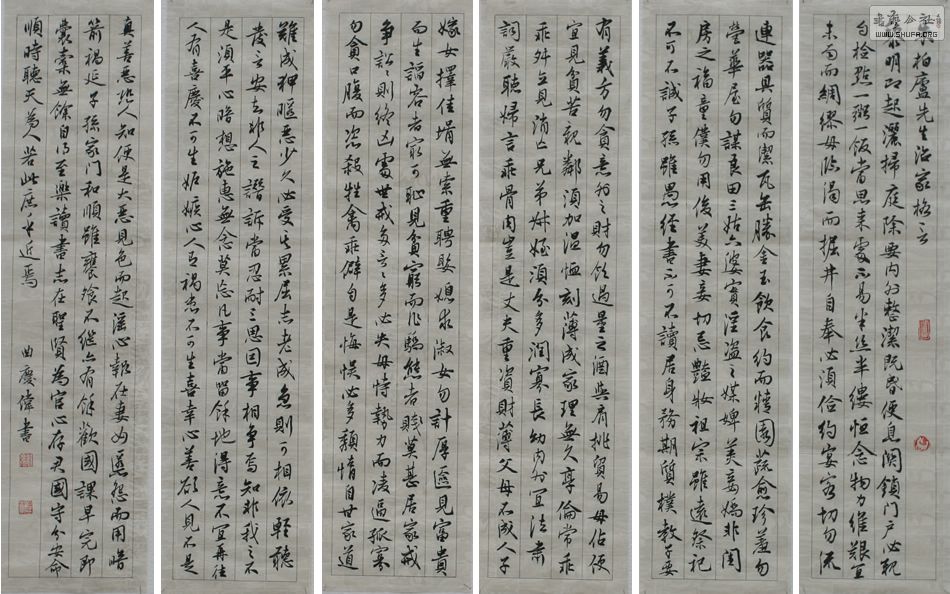 朱柏廬先生治家格言
黎明即起灑掃庭除要内外整潔既昏便息関鎖门户必親
自检點一粥一飯當思来處不易半丝半缕恒念物力維艱宜
未雨而綢繆毋临渴而掘井自奉必須儉约宴客切勿流
連器具質而潔瓦缶勝金玉飲食约而精園蔬愈珍羞勿
營華屋勿謀良田三姑六婆實淫盜之媒婢美妾嬌非閨
房之福童僕勿用俊美妻妾切忌艷妝祖宗雖遠祭祀
不可不誠子孫雖愚经書不可不讀居身務期質樸教子要
有義方勿貪意外之財勿飲過量之酒與肩挑貿易毋佔便
宜見貧苦親鄰須加温恤刻薄成家理無久享倫常乖
乖舛立見消亡兄弟叔姪須分多潤寡長幼内外宜法肅
詞嚴聽婦言乖骨肉豈是丈夫重資財薄父母不成人子
嫁女擇佳婿無索重聘娶媳求淑女勿計厚奩見富貴
而生諂容者最可恥見貧窮而作驕態者賤莫甚居家戒
争訟訟則终凶處世戒多言言多必失毋恃勢力而凌逼孤寡
勿貪口腹而恣殺牲禽乖僻自是悔悞必多颓惰自甘家道
難成狎暱惡少久必受其累屈志老成急則可相依輕聽
發言安去非人之譖訴當忍耐三思因事相争焉知非我之不
是須平心暗想施惠無念莫忘凡事當留餘地得意不宜再往
人有喜慶不可生妬嫉心人有禍患不可生喜幸心善欲人見不是
真善惡恐人知便是大惡見色而起淫心報在妻女匿怨而用暗
箭禍延子孫家门和順雖饔飧不繼亦有餘歡國課早完即
囊橐無餘自得至樂讀書志在聖賢為官心存君國守分安命
順時聽天為人若此庶乎近焉
曲慶偉書
WWW.SHUFA.ORG